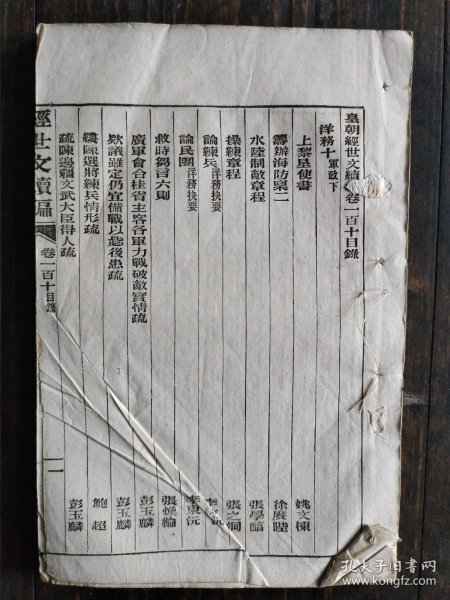 皇朝經世文續編卷一百十目錄
洋務十 軍政下
上黎星使書 姚文棟
籌辦海防稟二 徐賡陛
水陸制敵章程 張學醇
操練章程 張之洞
論練兵 洋務抉要 李東沅
論民團 洋務抉要 李東沅
救時芻言六則 張煥綸
廣軍會合桂省主客各軍力戰破敵實情疏 彭玉麟
欵議雖定仍宜備戰以毖後患疏 彭玉麟
縷陳選將練兵情形疏 鮑超
疏陳邊疆文武大臣得人疏 彭玉麟
經世文續編 卷一百十目錄 一
孔夫子旧书网
www.kongfz.com